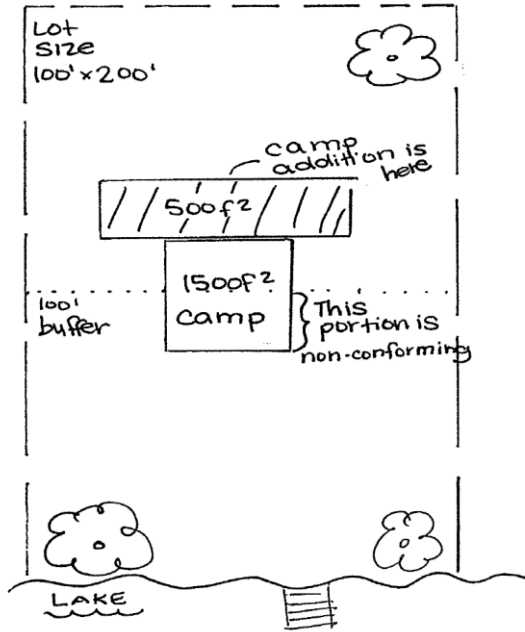 Lot
Size
100' x 200'
camp
addition is
here
500f²
1500F²
camp
100'
buffer
This
portion is
non-conforming
LAKE